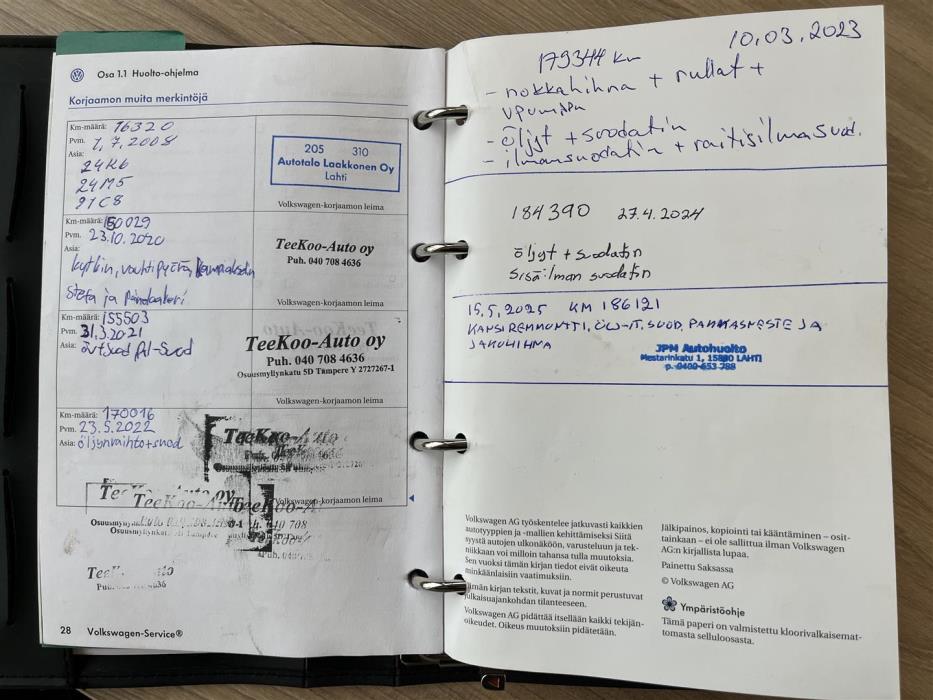 Osa 1.1 Huolto-ohjelma
Korjaamon muita merkintöjä
Km-määrä: 16320
Pvm. 1.7.2008
Asia:
24K6
24M5
21C8
205 310
Autotalo Laakkonen Oy
Lahti
Volkswagen-korjaamon leima
Km-määrä: 150029
Pvm. 23.10.2020
Asia:
kytkin, vauhtipyörä,
stefa ja
TeeKoo-Auto oy
Puh. 040 708 4636
Volkswagen-korjaamon leima
Km-määrä: 155503
Pvm. 31.3.2021
Asia:
TeeKoo-Auto oy
Puh. 040 708 4636
Osuusmyllynkatu 5D Tampere Y 2727267-1
Volkswagen-korjaamon leima
Km-määrä: 170016
Pvm. 23.5.2022
Asia: öljynvaihto+suod
TeeKoo-Auto
Volkswagen-korjaamon leima
TeeKoo-Auto oy
28 Volkswagen-Service®
179344 km 10.03.2023
- nokkahihna + rullat +
vpumppu
- öljyt + suodatin
- ilmansuodatin + raitisilmasuod.
184390 27.4.2024
öljyt + suodatin
sisäilman suodatin
15.5.2025 KM 186121
KANSIREMMONTTI, ÖLJYT, SUOD, PAKKASNESTE JA
JAKOHIHNA
JPM Autohuolto
Mestarinkatu 1, 15800 LAHTI
p. 0400-653 788
Volkswagen AG työskentelee jatkuvasti kaikkien
autotyyppien ja -mallien kehittämiseksi Siitä
syystä autojen ulkonäköön, varusteluun ja tek-
niikkaan voi milloin tahansa tulla muutoksia.
Sen vuoksi tämän kirjan tiedot eivät oikeuta
minkäänlaisiin vaatimuksiin.
Tämän kirjan tekstit, kuvat ja normit perustuvat
julkaisuajankohdan tilanteeseen.
Volkswagen AG pidättää itsellään kaikki tekijän-
oikeudet. Oikeus muutoksiin pidätetään.
Jälkipainos, kopiointi tai kääntäminen – osit-
tainkaan – ei ole sallittua ilman Volkswagen
AG:n kirjallista lupaa.
Painettu Saksassa
© Volkswagen AG
Ympäristöohje
Tämä paperi on valmistettu kloorivalkaisemat-
tomasta selluloosasta.